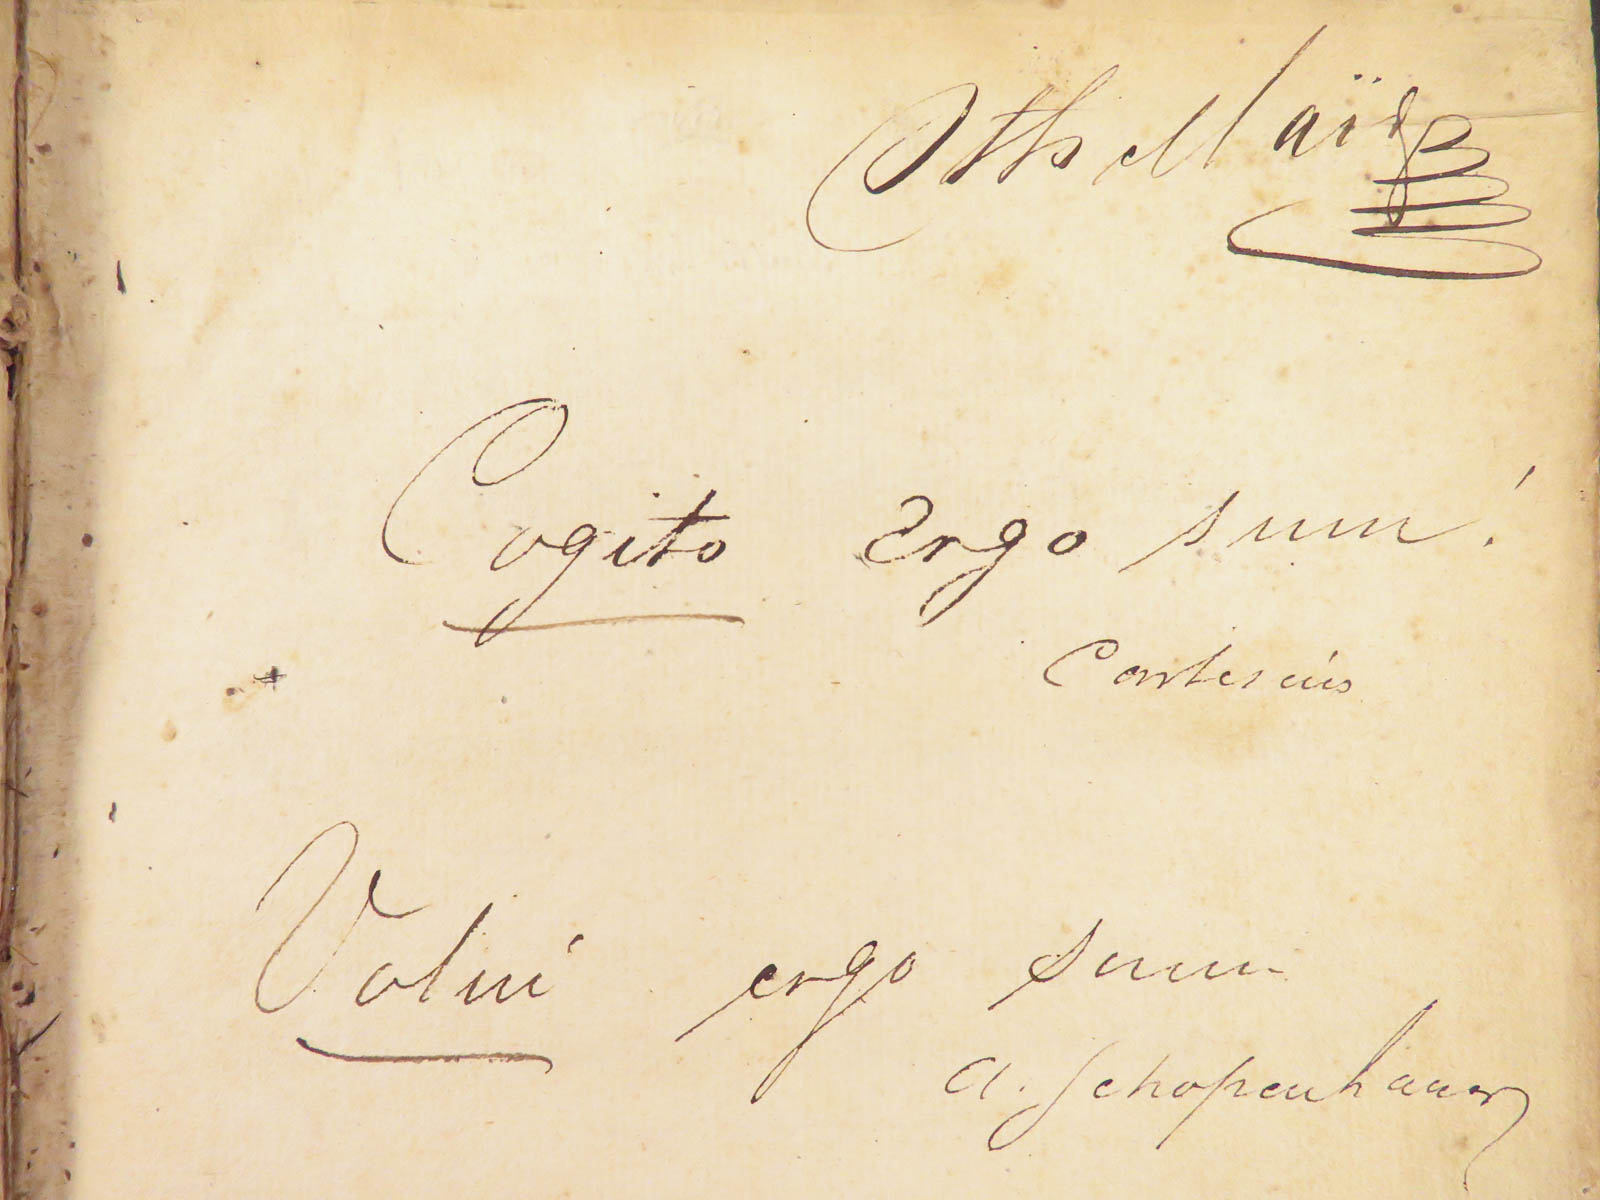 Oth. Maïer
Cogito ergo sum!
Cartesius
Volui ergo sum
A. Schopenhauer